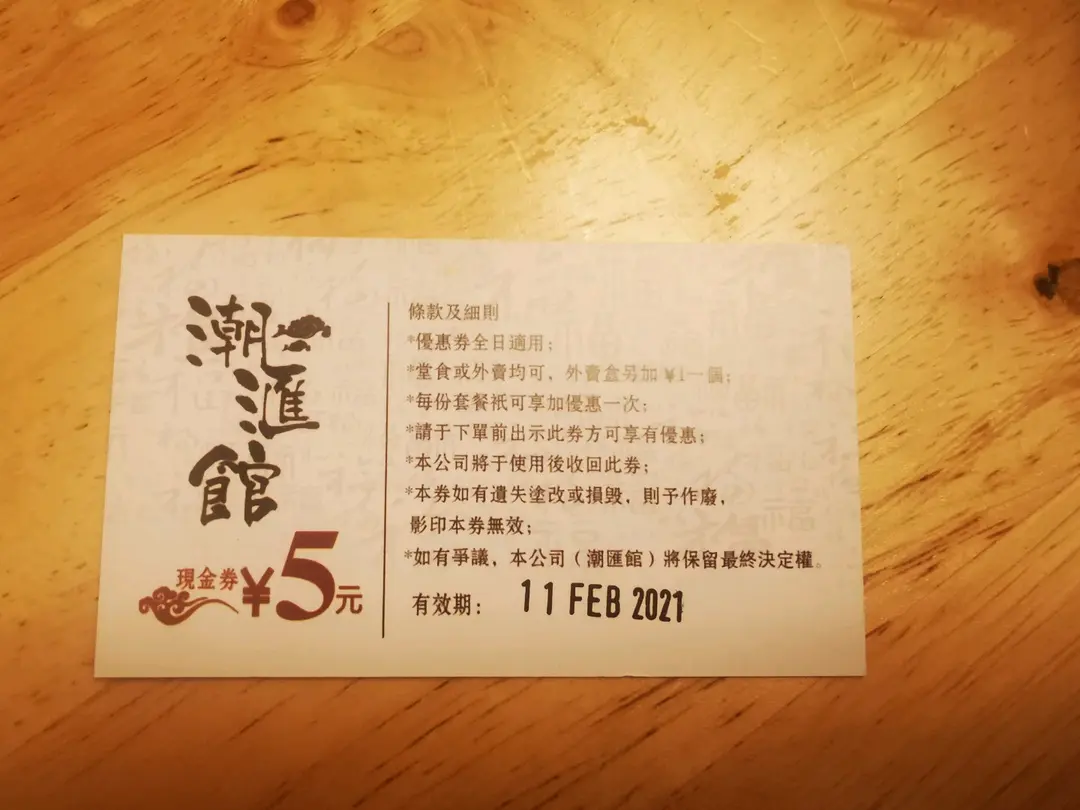 潮滙館
現金券¥5元
條款及細則
*優惠券全日適用;
*堂食或外賣均可，外賣盒另加¥1一個;
*每份套餐衹可享加優惠一次;
*請于下單前出示此券方可享有優惠;
*本公司將于使用後收回此券;
*本券如有遺失塗改或損毀，則予作廢，
影印本券無效;
*如有爭議，本公司（潮匯館）將保留最終決定權。
有效期: 11 FEB 2021